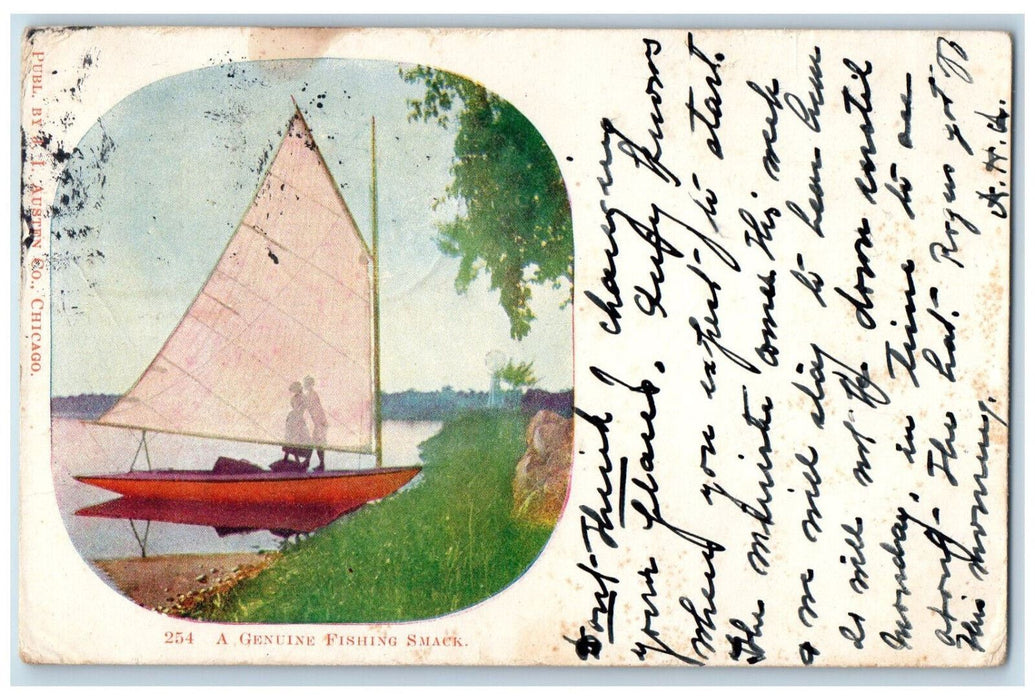 PUBL. BY F. I. AUSTEN CO., CHICAGO.
254 A GENUINE FISHING SMACK.
Dont Think / changing
your plans. Guffy phoned
when you expect to start.
The minister comes this week
a m will stay to hear him
so will not go down until
Monday, in time to
The hat. Rogus got
this morning.
A. H. A.